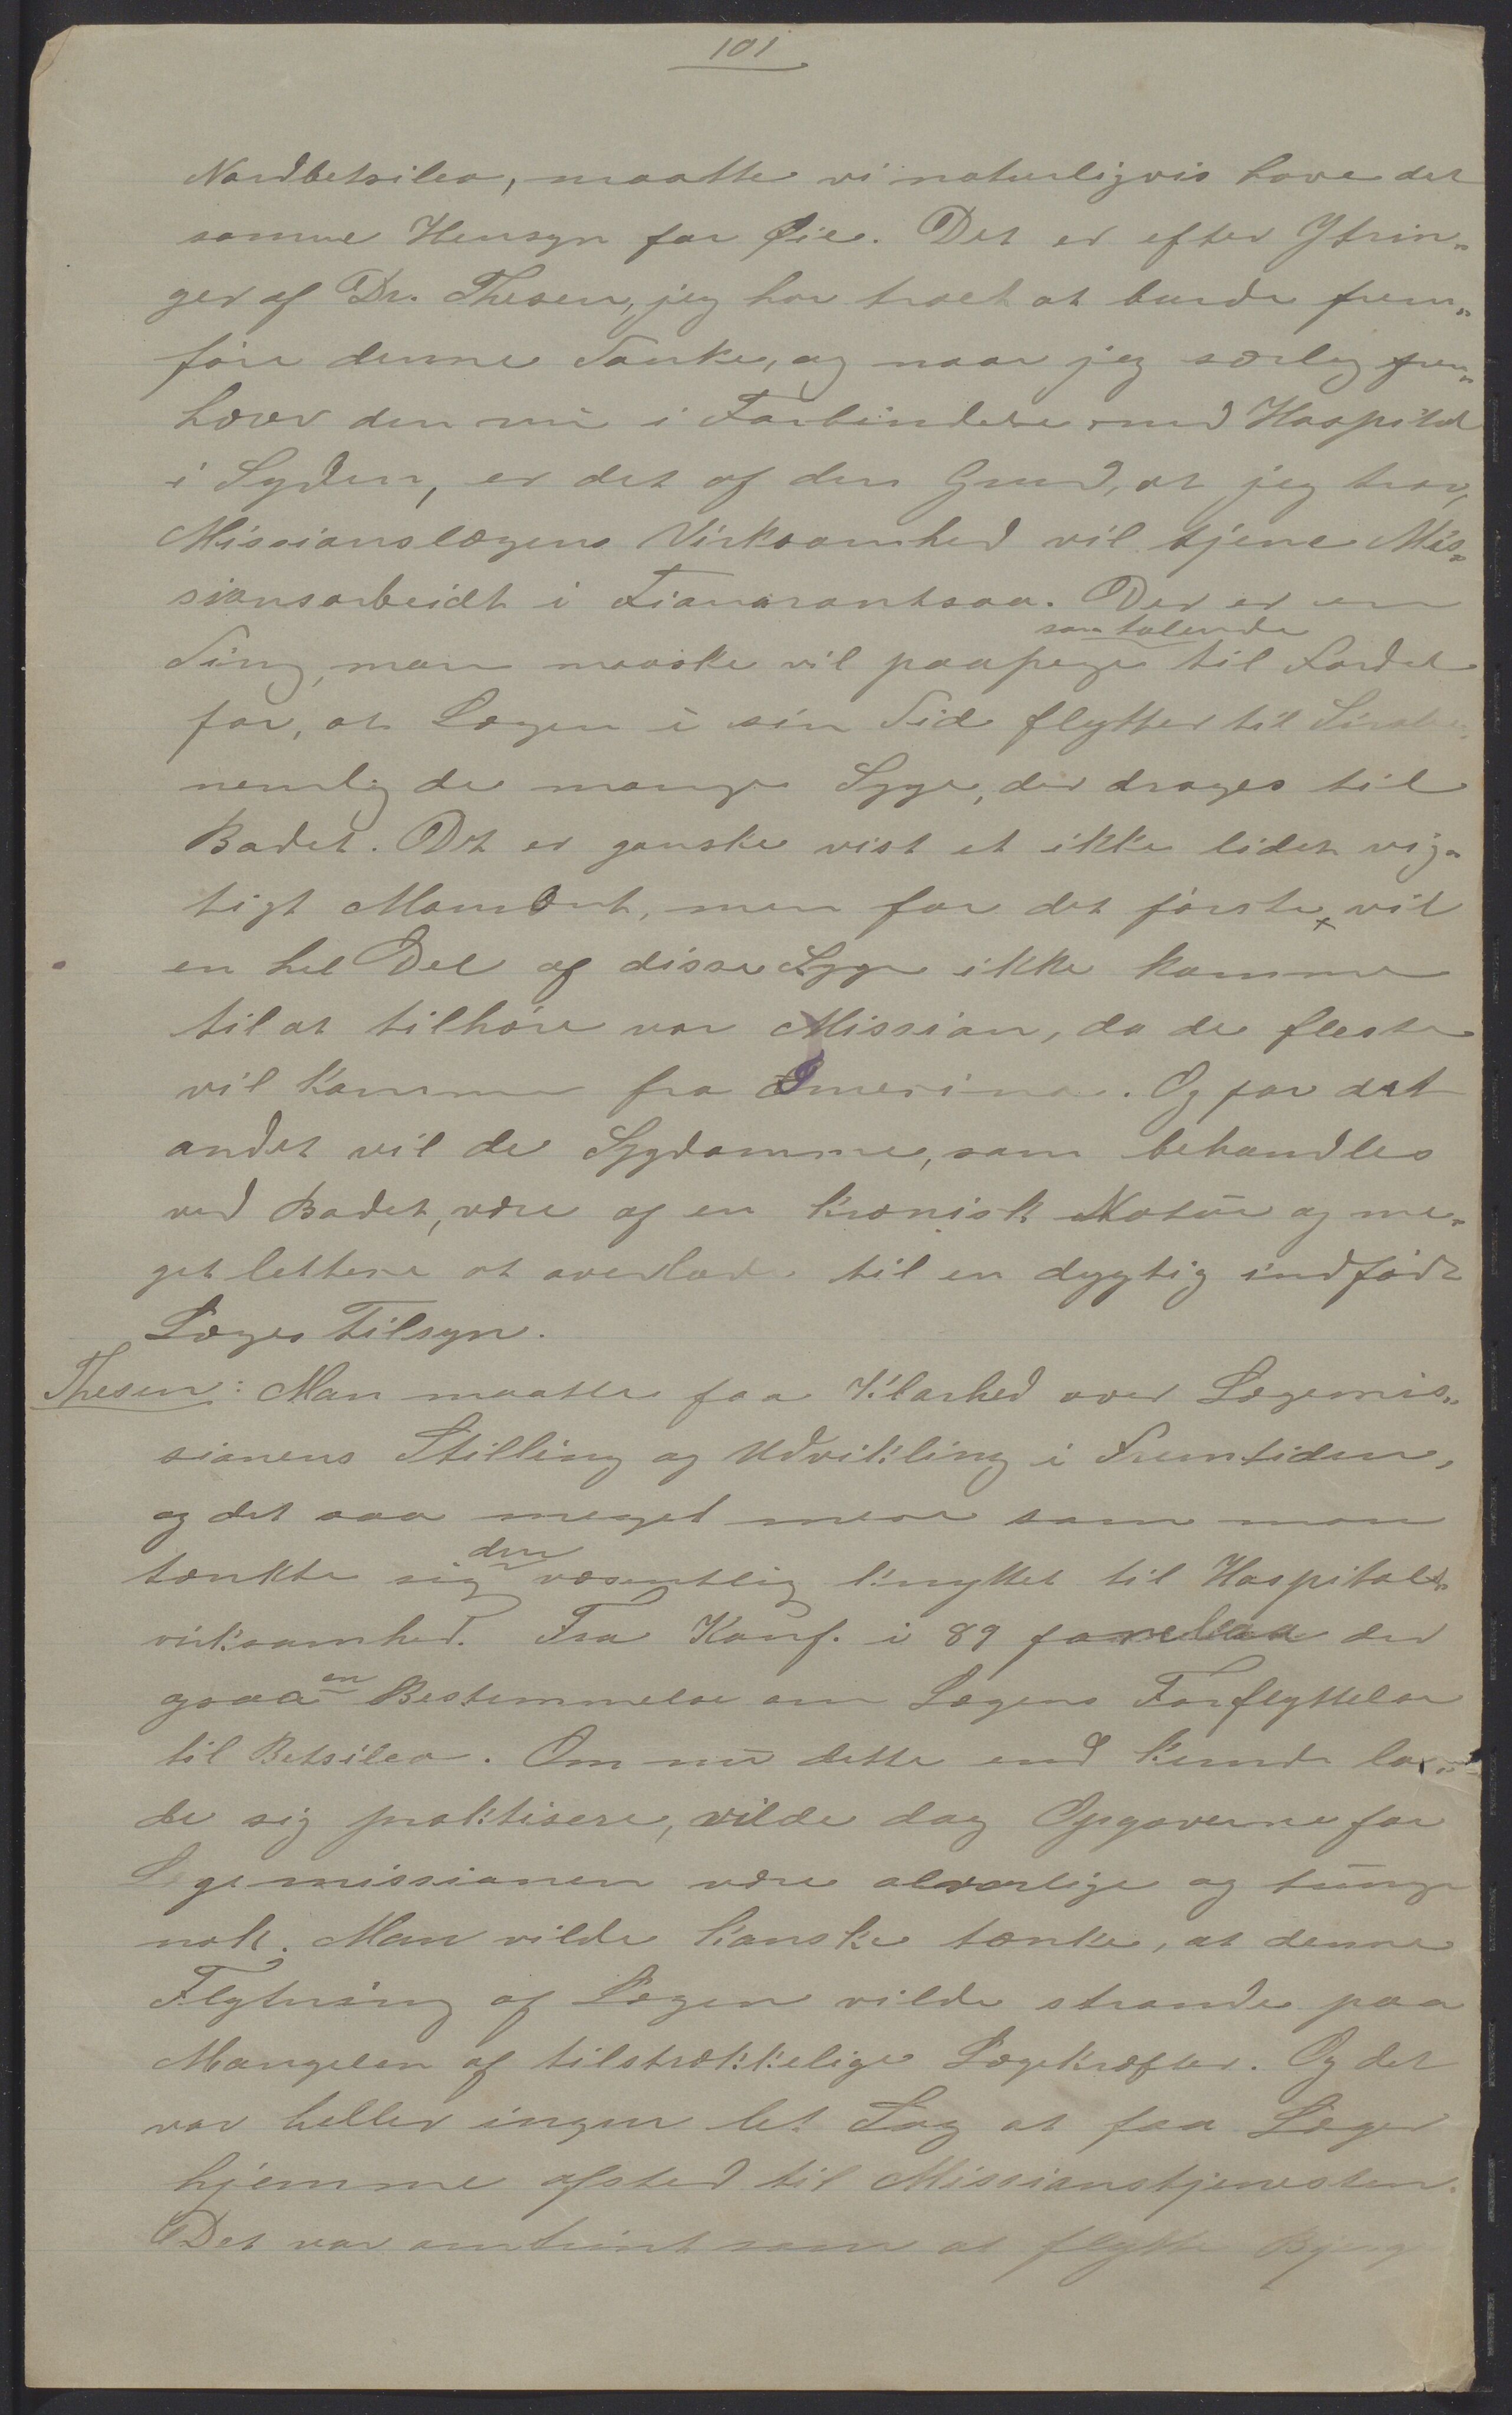 101
Nordbetsileo, maatte vi naturligvis have det
samme Hensyn for Øie. Det er efter Ytrin„
ger af Dr. Thesen, jeg har troet at burde frem„
føre denne Tanke, og naar jeg særlig frem„
hæver den nu i Forbindelse med Hospital
i Syden, er det af den Grund, at jeg tror,
Missionslægens Virksomhed vil tjene Mis„
sionsarbeidet i Fianarantsoa. Der er en
som talende
Ting, man maaske vil paapege til Fordel
for, at Lægen i sin Tid flytter til Sirabe,
nemlig de mange Syge, der drages til
Badet. Det er ganske vist et ikke lidet vig„
tigt Moment, men for det første, vil
en hel Del af disse Syge ikke komme
til at tilhøre vor Mission, da de fleste
vil komme fra Imerina. Og for det
andet vil de Sygdomme, som behandles
ved Badet, være af en kronisk Natur og me„
get lettere at overlade til en dygtig indfødt
Læges Tilsyn.
Thesen: Man maatte faa Klarhed over Lægemis„
sionens Stilling og Udvikling i Fremtiden,
og det saa meget mere som man
den
tænkte sig væsentlig knyttet til Hospitals„
virksomhed. Fra Konf. i 89 forelaa der
en
ogsaa Bestemmelse om Lægens Forflyttelse
til Betsileo. Om nu dette end kunde la„
de sig praktisere, vilde dog Opgaverne for
Lægemissionen være alvorlige og tunge
nok. Man vilde kanske tænke, at denne
Flytning af Lægen vilde strande paa
Mangelen af tilstrækkelige Lægekræfter. Og det
var heller ingen let Sag at faa Læger
hjemme afsted til Missionstjenesten.
Det var omtrent som at flytte Bjerge